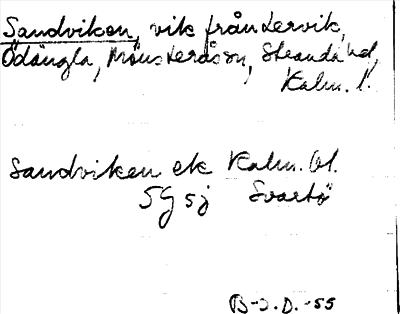 Sandviken, vik från Lervik,
Ödängla, Mönsterås sn, Stranda hd,
Kalm. l.
Sandviken ek Kalm. bl.
5G sj Svartö
B-J.D.-55